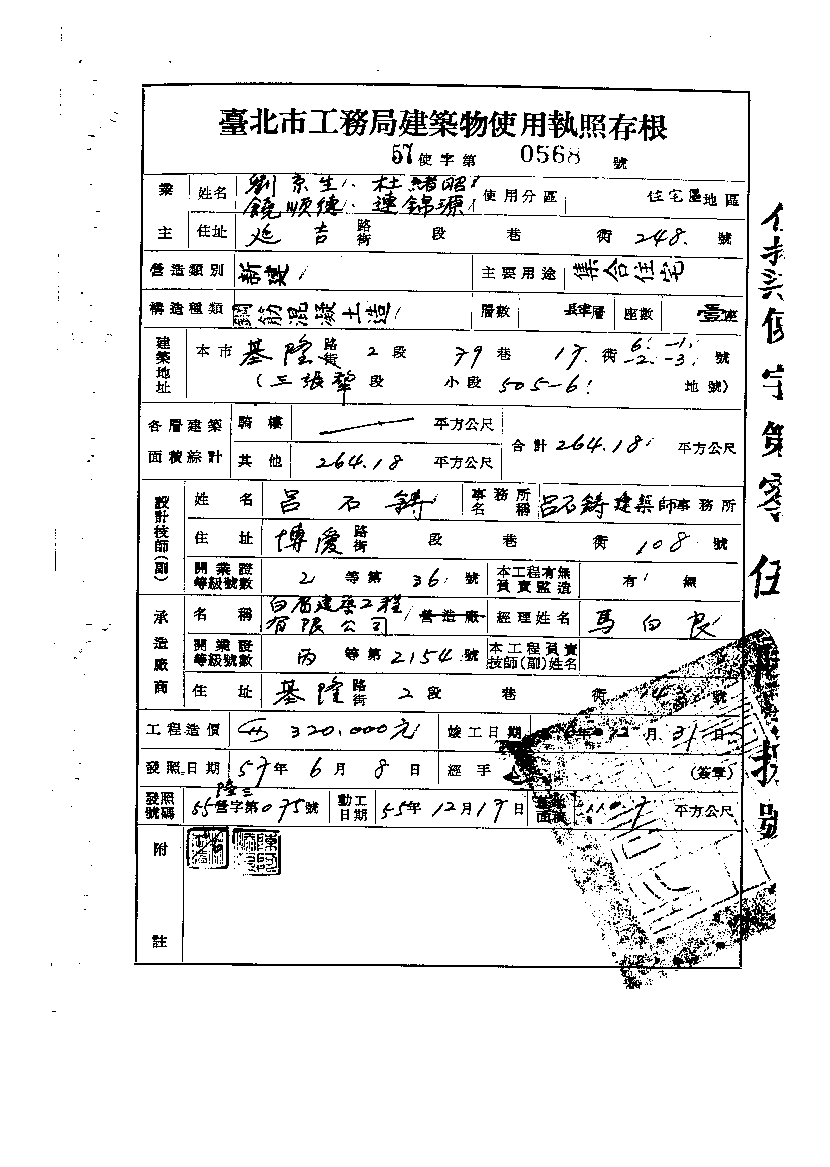 臺北市工務局建築物使用執照存根
57使字第 0568 號
業主 姓名 劉京生、杜緒昭 饒順德、連錦源 使用分區 住宅區地區
住址 延吉路街 段 巷 衖 248. 號
營造類別 新建 主要用途 集合住宅
構造種類 鋼筋混凝土造 層數 層 座數 壹座
建築地址 本市 基隆路街 2段 79巷 17衖 6. -1. -2. -3. 號
(三張犂段 小段 505-6 地號)
各層建築面積綜計 騎樓 平方公尺 合計 264.18 平方公尺
其他 264.18 平方公尺
設計技師(副) 姓名 呂石鑄 事務所名稱 呂石鑄建築師事務所
住址 博愛路街 段 巷 衖 108 號
開業證等級號數 2等第 36 號 本工程有無負責監造 有 無
承造廠商 名稱 白眉建築工程有限公司 營造廠 經理姓名 馬白良
開業證等級號數 丙等第 2154 號 本工程負責技師(副)姓名
住址 基隆路街 2段 巷 衖 號
工程造價 320,000元 竣工日期 年 12月 31日
發照日期 57年 6月 8日 經手 (簽章)
發照號碼 55隆三營字第075號 動工日期 55年 12月 17日 平方公尺
附註